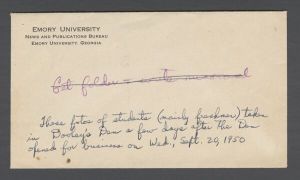 EMORY UNIVERSITY
NEWS AND PUBLICATIONS BUREAU
EMORY UNIVERSITY, GEORGIA
Gal folder
These fotos of students (mainly freshmen) taken
in Dooley's Den a few days after the Den
opened for business on Wed., Sept. 20, 1950